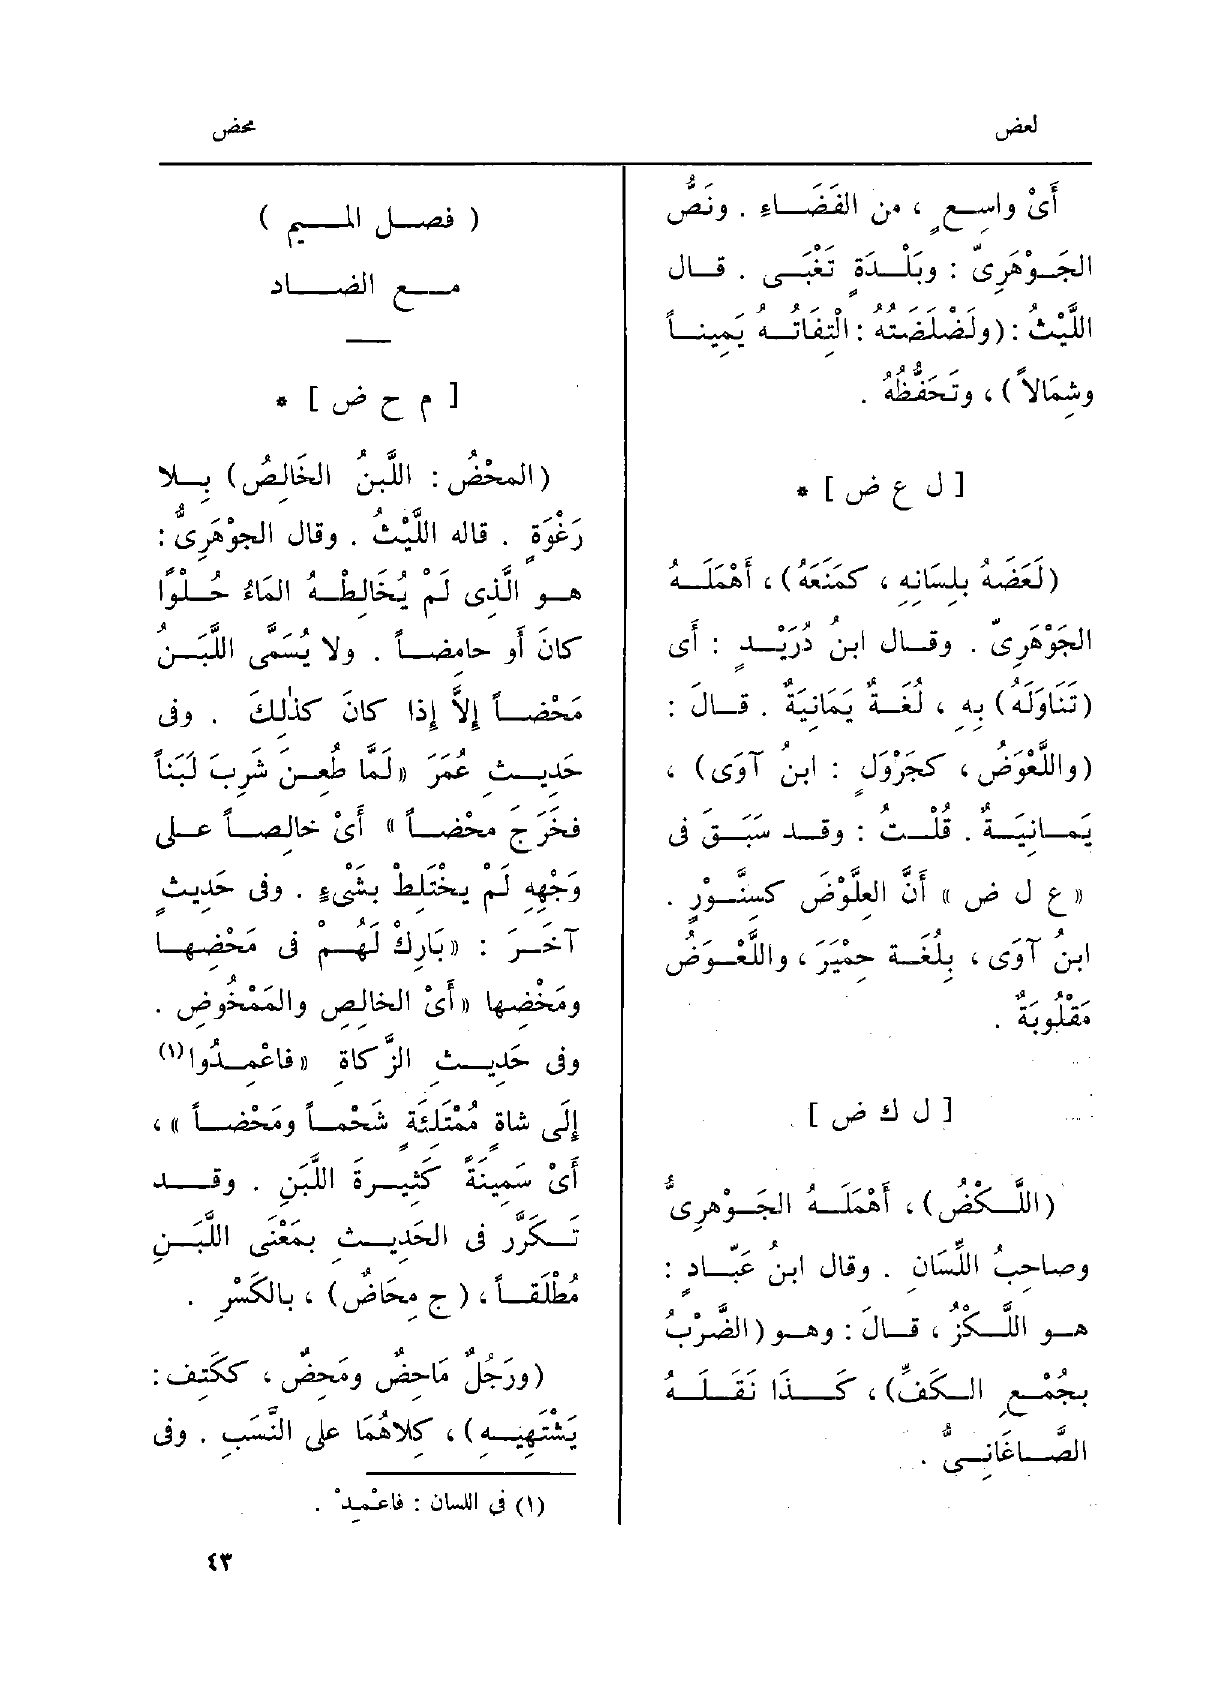 لعض
محض
أَىْ واسِعٍ ، من الفَضَاءِ . ونَصُّ
الجَوْهَرِىّ : وبَلْدَةٍ تَغْبَى . قال
اللَّيْثُ : (ولَضْلَضَتُهُ : الْتِفَاتُهُ يَمِيناً
وشِمَالاً) ، وتَحَفُّظُهُ .
[ ل ع ض ] *
(لَعَضَهُ بِلِسَانِهِ ، كمَنَعَهُ) ، أَهْمَلَهُ
الجَوْهَرِىّ . وقال ابنُ دُرَيْدٍ : أَى
(تَنَاوَلَهُ) بِهِ ، لُغَةٌ يَمَانِيَةٌ . قالَ :
(واللَّعْوَضُ ، كجَرْوَلٍ : ابنُ آوَى) ،
يَمانِيَةٌ . قُلْتُ : وقد سَبَقَ فى
« ع ل ض » أَنَّ العِلَّوْضَ كسِنَّوْرٍ .
ابنُ آوَى ، بِلُغَة حِمْيَرَ ، واللَّعْوَضُ
مَقْلُوبَةٌ .
[ ل ك ض ]
(اللَّكْضُ) ، أَهْمَلَهُ الجَوْهَرِىُّ
وصاحِبُ اللِّسَان . وقال ابنُ عَبّادٍ :
هو اللَّكْزُ ، قالَ : وهو (الضَّرْبُ
بجُمْعِ الكَفِّ) ، كَذا نَقَلَهُ
الصَّاغَانِىُّ .
( فصل الميم )
مع الضاد
[ م ح ض ] *
(المحْضُ : اللَّبنُ الخَالِصُ) بِلا
رَغْوَةٍ . قاله اللَّيْثُ . وقال الجوْهَرِىُّ :
هو الَّذِى لَمْ يُخَالِطْهُ المَاءُ حُلْوًا
كانَ أَو حامِضاً . ولا يُسَمَّى اللَّبَنُ
مَحْضاً إِلاَّ إِذا كانَ كذٰلِكَ . وفى
حَدِيثِ عُمَرَ «لَمَّا طُعِنَ شَرِبَ لَبَناً
فخَرَجَ محْضاً » أَىْ خالِصاً على
وَجْهِهِ لَمْ يخْتَلِطْ بشَىْءٍ . وفى حَدِيثٍ
آخَرَ : «بَارِكْ لَهُمْ فى مَحْضِها
ومَخْضِها «أَىْ الخالِصِ والمَمْخُوضِ .
وفى حَدِيثِ الزَّكاة «فاعْمِدُوا(١)
إِلَى شاةٍ مُمْتَلِئَةٍ شَحْماً ومَحْضاً » ،
أَىْ سَمِينَةً كَثِيرةَ اللَّبَنِ . وقد
تَكَرَّر فى الحَدِيثِ بِمَعْنَى اللَّبَنِ
مُطْلَقاً ، ( ج مِحَاضٌ) ، بالكَسْرِ .
(ورَجُلٌ مَاحِضٌ ومَحِضٌ ، ككَتِف :
يَشْتَهِيهِ) ، كِلاهُمَا على النَّسَبِ . وفى
(١) فى اللسان : فاعْمِدْ .
٤٣